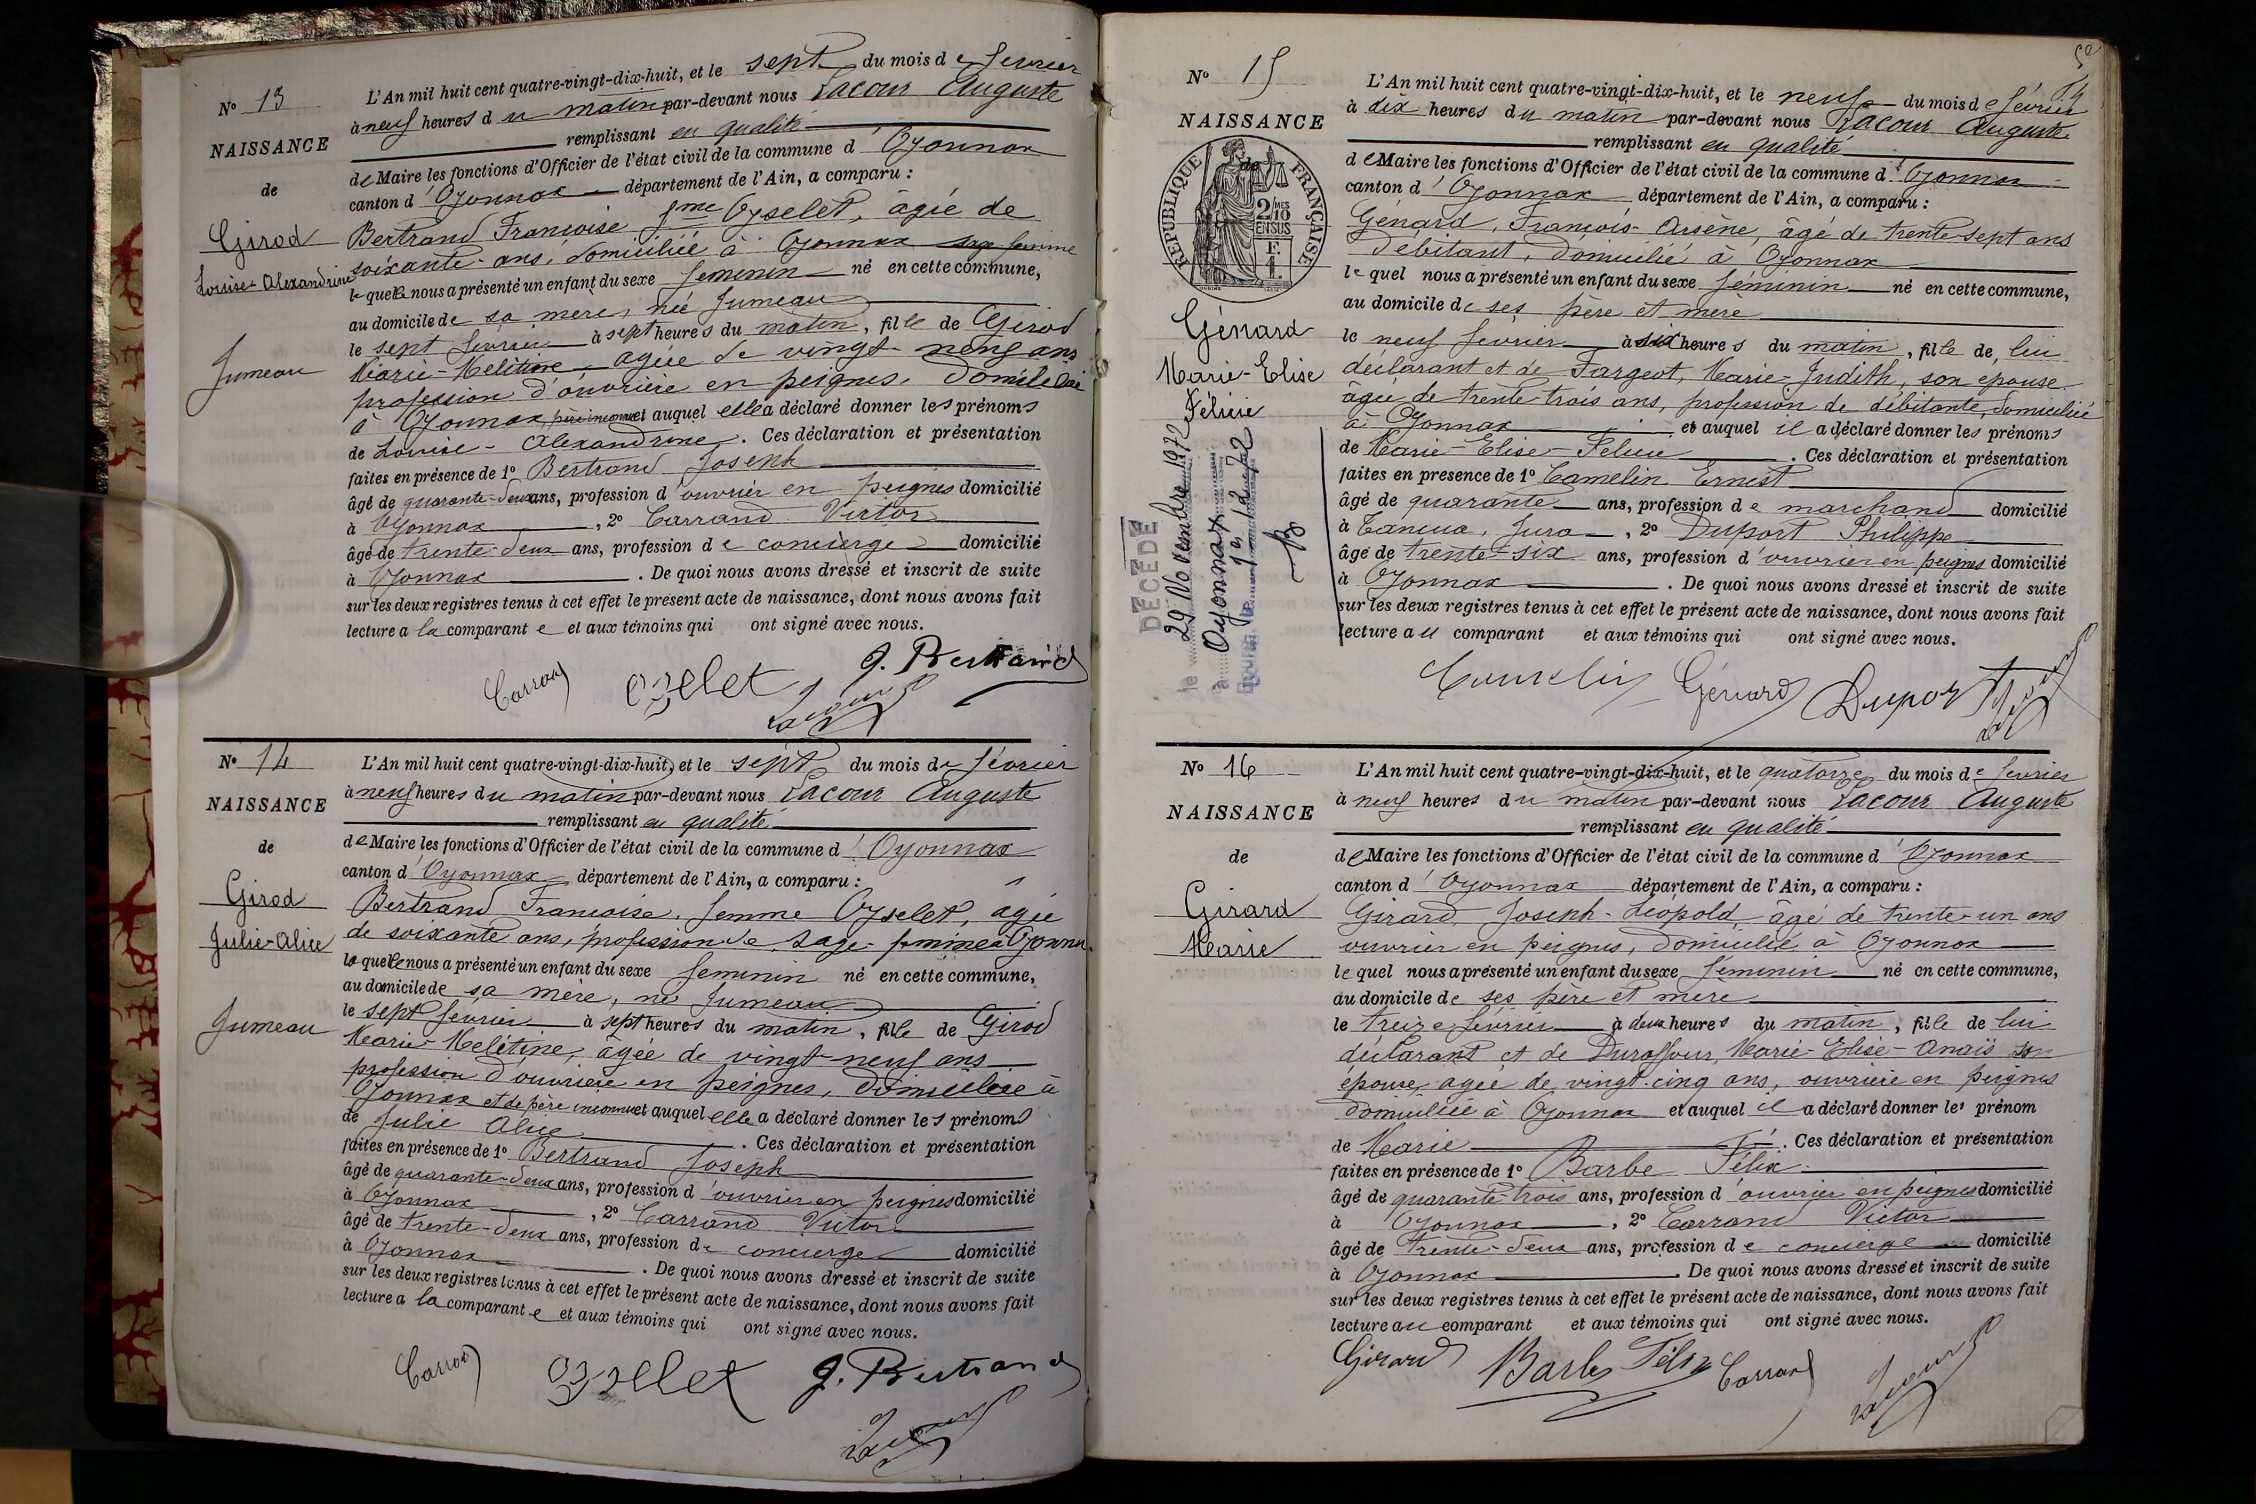 N° 13
NAISSANCE
de
Girod
Louise-Alexandrine
Jumeau
L'An mil huit cent quatre-vingt-dix-huit, et le sept du mois de février
à neuf heures du matin par-devant nous Lacour Auguste
remplissant en qualité
de Maire les fonctions d'Officier de l'état civil de la commune d'Oyonnax
canton d'Oyonnax département de l'Ain, a comparu :
Bertrand Françoise fme Oyselet, âgée de
soixante ans, domiciliée à Oyonnax sage femme
laquelle nous a présenté un enfant du sexe féminin né en cette commune,
au domicile de sa mère, née Jumeau
le sept février à sept heures du matin, fille de Girod
Marie-Melitine, agée de vingt-neuf ans
profession d'ouvrière en peignes, domiciliée
à Oyonnax, père inconnu et auquel elle a déclaré donner les prénoms
de Louise-Alexandrine. Ces déclaration et présentation
faites en présence de 1° Bertrand Joseph
âgé de quarante-deux ans, profession d'ouvrier en peignes domicilié
à Oyonnax, 2° Carrand Victor
âgé de trente-deux ans, profession de concierge domicilié
à Oyonnax. De quoi nous avons dressé et inscrit de suite
sur les deux registres tenus à cet effet le présent acte de naissance, dont nous avons fait
lecture a la comparante et aux témoins qui ont signé avec nous.
Carrand Oyselet J. Bertrand
Lacour
N° 14
NAISSANCE
de
Girod
Julie-Alice
Jumeau
L'An mil huit cent quatre-vingt-dix-huit, et le sept du mois de février
à neuf heures du matin par-devant nous Lacour Auguste
remplissant en qualité
de Maire les fonctions d'Officier de l'état civil de la commune d'Oyonnax
canton d'Oyonnax département de l'Ain, a comparu :
Bertrand Françoise, femme Oyselet, âgée
de soixante ans, profession de sage-femme à Oyonnax
laquelle nous a présenté un enfant du sexe féminin né en cette commune,
au domicile de sa mère, né Jumeau
le sept février à sept heures du matin, fille de Girod
Marie-Melétine, âgée de vingt-neuf ans
profession d'ouvrière en peignes, domiciliée à
Oyonnax et de père inconnu et auquel elle a déclaré donner les prénoms
de Julie Alice. Ces déclaration et présentation
faites en présence de 1° Bertrand Joseph
âgé de quarante-deux ans, profession d'ouvrier en peignes domicilié
à Oyonnax, 2° Carrand Victor
âgé de trente-deux ans, profession de concierge domicilié
à Oyonnax. De quoi nous avons dressé et inscrit de suite
sur les deux registres tenus à cet effet le présent acte de naissance, dont nous avons fait
lecture a la comparante et aux témoins qui ont signé avec nous.
Carrand Oyselet J. Bertrand
Lacour
N° 15
NAISSANCE
de
RÉPUBLIQUE FRANÇAISE
2/10 MES
EN SUS
F.
1.
Génard
Marie-Elise
Félicie
DÉCÉDÉ
le 29 Novembre 1972
à Oyonnax
L'An mil huit cent quatre-vingt-dix-huit, et le neuf du mois de février
à dix heures du matin par-devant nous Lacour Auguste
remplissant en qualité
de Maire les fonctions d'Officier de l'état civil de la commune d'Oyonnax
canton d'Oyonnax département de l'Ain, a comparu :
Génard, François-Arsène, âgé de trente-sept ans
débitant, domicilié à Oyonnax
lequel nous a présenté un enfant du sexe féminin né en cette commune,
au domicile de ses père et mère
le neuf février à six heures du matin, fille de lui
déclarant et de Fargeot, Marie-Judith, son epouse
âgée de trente-trois ans, profession de débitante, domiciliée
à Oyonnax et auquel il a déclaré donner les prénoms
de Marie-Elise-Félicie. Ces déclaration et présentation
faites en présence de 1° Camelin Ernest
âgé de quarante ans, profession de marchand domicilié
à Tancua, Jura, 2° Duport Philippe
âgé de trente-six ans, profession d'ouvrier en peignes domicilié
à Oyonnax. De quoi nous avons dressé et inscrit de suite
sur les deux registres tenus à cet effet le présent acte de naissance, dont nous avons fait
lecture au comparant et aux témoins qui ont signé avec nous.
Camelin Génard Duport
Lacour
N° 16
NAISSANCE
de
Girard
Marie
L'An mil huit cent quatre-vingt-dix-huit, et le quatorze du mois de février
à neuf heures du matin par-devant nous Lacour Auguste
remplissant en qualité
de Maire les fonctions d'Officier de l'état civil de la commune d'Oyonnax
canton d'Oyonnax département de l'Ain, a comparu :
Girard Joseph-Léopold, âgé de trente-un ans
ouvrier en peignes, domicilié à Oyonnax
lequel nous a présenté un enfant du sexe féminin né en cette commune,
au domicile de ses père et mère
le treize février à deux heures du matin, fille de lui
déclarant et de Duraffour, Marie-Elise-Anaïs son
épouse, agée de vingt-cinq ans, ouvrière en peignes
domiciliée à Oyonnax et auquel il a déclaré donner le prénom
de Marie. Ces déclaration et présentation
faites en présence de 1° Barbe Félix
âgé de quarante-trois ans, profession d'ouvrier en peignes domicilié
à Oyonnax, 2° Carrand Victor
âgé de trente-deux ans, profession de concierge domicilié
à Oyonnax. De quoi nous avons dressé et inscrit de suite
sur les deux registres tenus à cet effet le présent acte de naissance, dont nous avons fait
lecture au comparant et aux témoins qui ont signé avec nous.
Girard Barbe Félix Carrand
Lacour